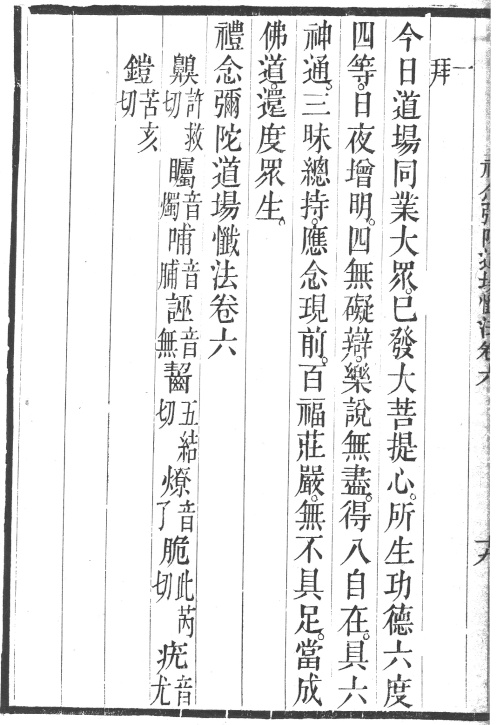 一拜
今日道場同業大眾。已發大菩提心。所生功德六度
四等。日夜增明。四無礙辯。樂說無盡。得八自在。具六
神通。三昧總持。應念現前。百福莊嚴。無不具足。當成
佛道。還度眾生。
禮念彌陀道場懺法卷六
齅許救切 矚音燭 哺音脯 誣音無 齧五結切 燎音了 脆此芮切 疣音尤
鎧苦亥切